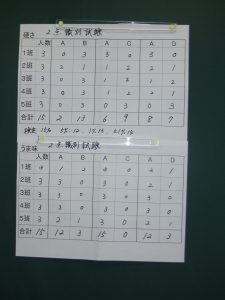 硬さ 2点識別試験
人数 A B A C A D
1班 3 0 3 3 0 3 0
2班 3 2 1 1 2 2 1
3班 3 0 3 1 2 1 2
4班 3 0 3 1 2 2 1
5班 3 0 3 0 3 0 3
合計 15 2 13 6 9 8 7
うま味 2点識別試験
人数 A B A C A D
1班 3 1 2 3 0 2 1
2班 3 3 0 3 0 2 1
3班 3 3 0 3 0 3 0
4班 3 3 0 3 0 3 0
5班 3 2 1 3 0 2 1
合計 15 12 3 15 0 12 3